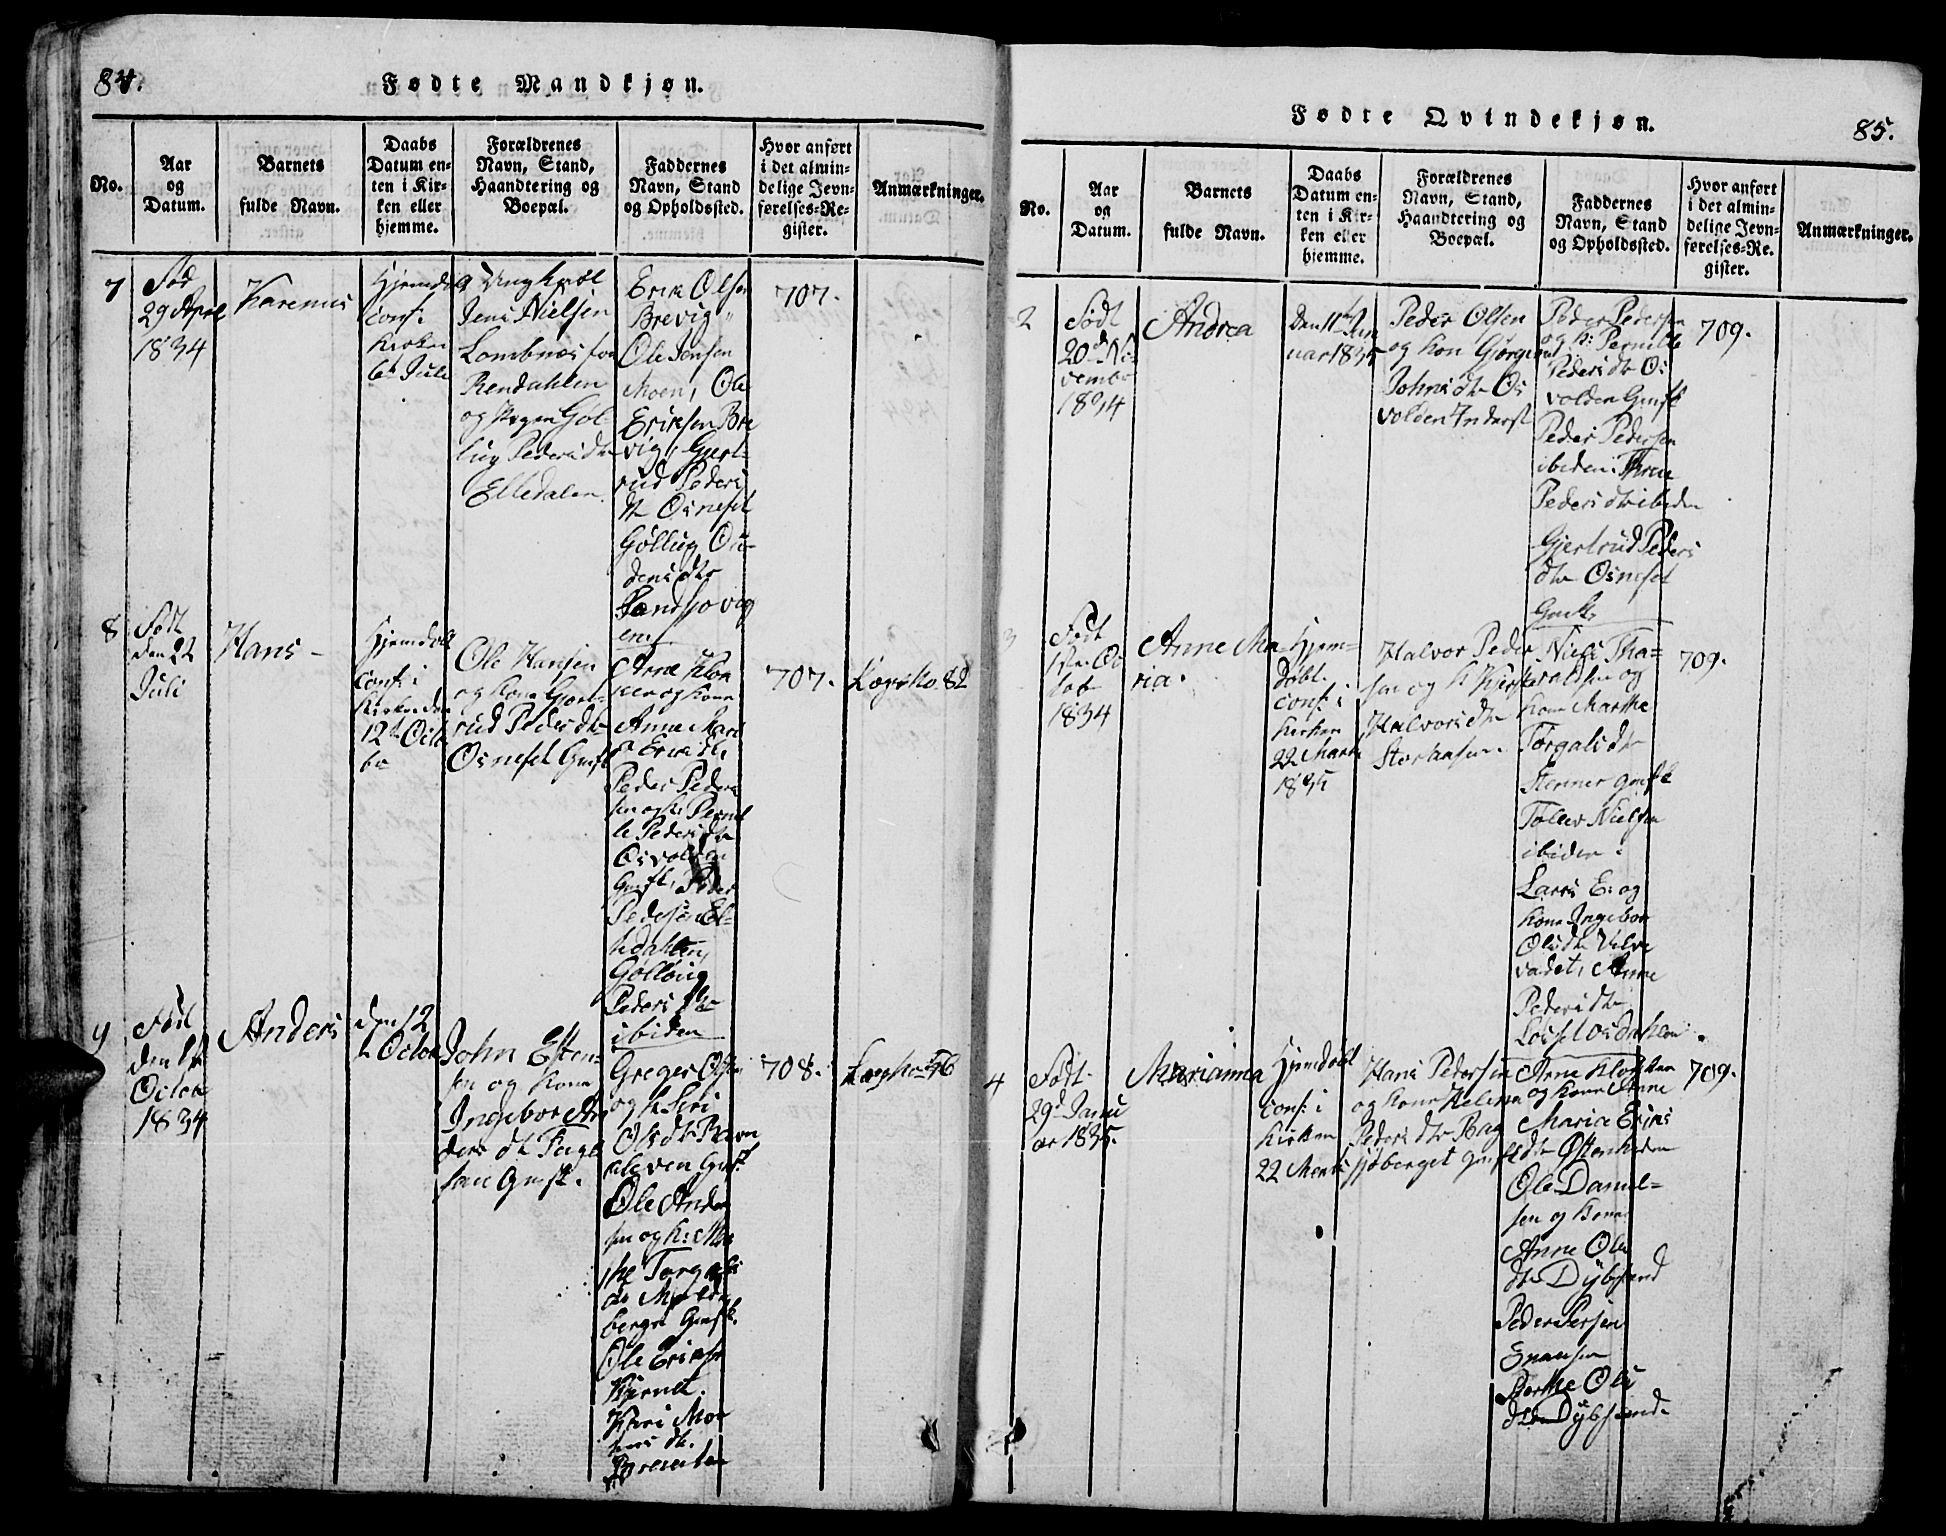 84.
Fødte Mandkjøn.
No.
Aar
og
Datum.
Barnets
fulde Navn.
Daabs
Datum en-
ten i Kir-
ken eller
hjemme.
Forældrenes
Navn, Stand,
Haandtering og
Boepæl.
Faddernes
Navn, Stand
og Opholdssted.
Hvor anført
i det almin-
delige Jevn-
førelses-Re-
gister.
Anmærkninger.
7
Fød
29 April
1834
Karenus
Hjemdø
conf: i
Kirken
6t Juli
Jens Nielsen
Lombnæs fra
Rendahlen
og Pigen Gøl-
lug Pedersdtr
Elledalen.
Erik Olsen
Brevig
Ole Jensen
Moen, Ole
Eriksen Bre
vig, Gjert-
rud Peders
dt Osneset
Gøllug Ou-
densdtr
Sandsovig
en
707.
8
Født
den 22
Juli
Hans
Hjemdøbt
conf: i
Kirken den
12t Octo
br
Ole Hansen
og Kone Gjert-
rud Pedersdtr
Osneset Gmst
Arne Klok
ker og Kone
Anne Mari
a Ericsdt.
Peder Peder
sen og k: Pernil
le Pedersdtr
Osvolden
Gmst, Peder
Pedersen El-
ledahlen,
Gølløug
Pedersdtr
ibiden
707.
Lægs No. 82
9
Født
den 1st
October
1834
Anders
den 12
t Octob
John Esten-
sen og Kone
Ingebor An
ders dt Fuge
san Gmst.
Greger Olsen
og k. Siri
Olsdtr
aleven Gmst
Ole Ander
sen og k: Ma
the Torgals
bergst Gmst.
Ole Ericksen
Kari Mor
tens dt.
708.
Læg No 46
Fødte Qvindekjøn.
85.
No.
Aar
og
Datum.
Barnets
fulde Navn.
Daabs
Datum en-
ten i Kir-
ken eller
hjemme.
Forældrenes
Navn, Stand,
Haandtering og
Boepæl.
Faddernes
Navn, Stand
og Opholdssted.
Hvor anført
i det almin-
delige Jevn-
førelses-Re-
gister.
Anmærkninger.
2
Født
20d No
vember
1834
Andrea
den 11te Jan
uar 1835
Peder Olsen
og Kon Gjørgine
Johnsdtr Os
volden Inderst
Peder Pedersen
og k: Pernille
Pedersdtr Os
volden Gmst
Peder Pedersen
ibiden. Thrine
Pedersdtr ibiden
Gjertrud Peders
dtr Osneset
Gmst
709.
3
Født
1ste Oc
tob
1834
Anne Ma
ria.
Hjem-
døbt.
conf: i
Kirken
22 Marts
1835
Halvor Peder
sen og K Kjersti
Halvorsdtr
Niels Tha-
raldsen og
Kone Marthe
Torgalsdtr
Stenner Gmst
Tollev Nielsen
ibiden.
Lars E: og
Kone Ingebor
Olsdtr
vadet, Anne
Pedersdtr
709.
4
Født
29d Janu
ar 1835.
Marianna
Hjemdøbt
conf: i
Kirken
22 Marts
Hans Pedersen
og Kone Helena
Pedersdtr Bag
sjøberget Gmst
Arne Klokker
og Kone Anne
Maria Erics
dtr Østenheden
Ole Daniel-
sen og Kone
Anne Ols
dtr Dybsand
Peder Persen
Marthe Ols
dtr Dybsand.
709.